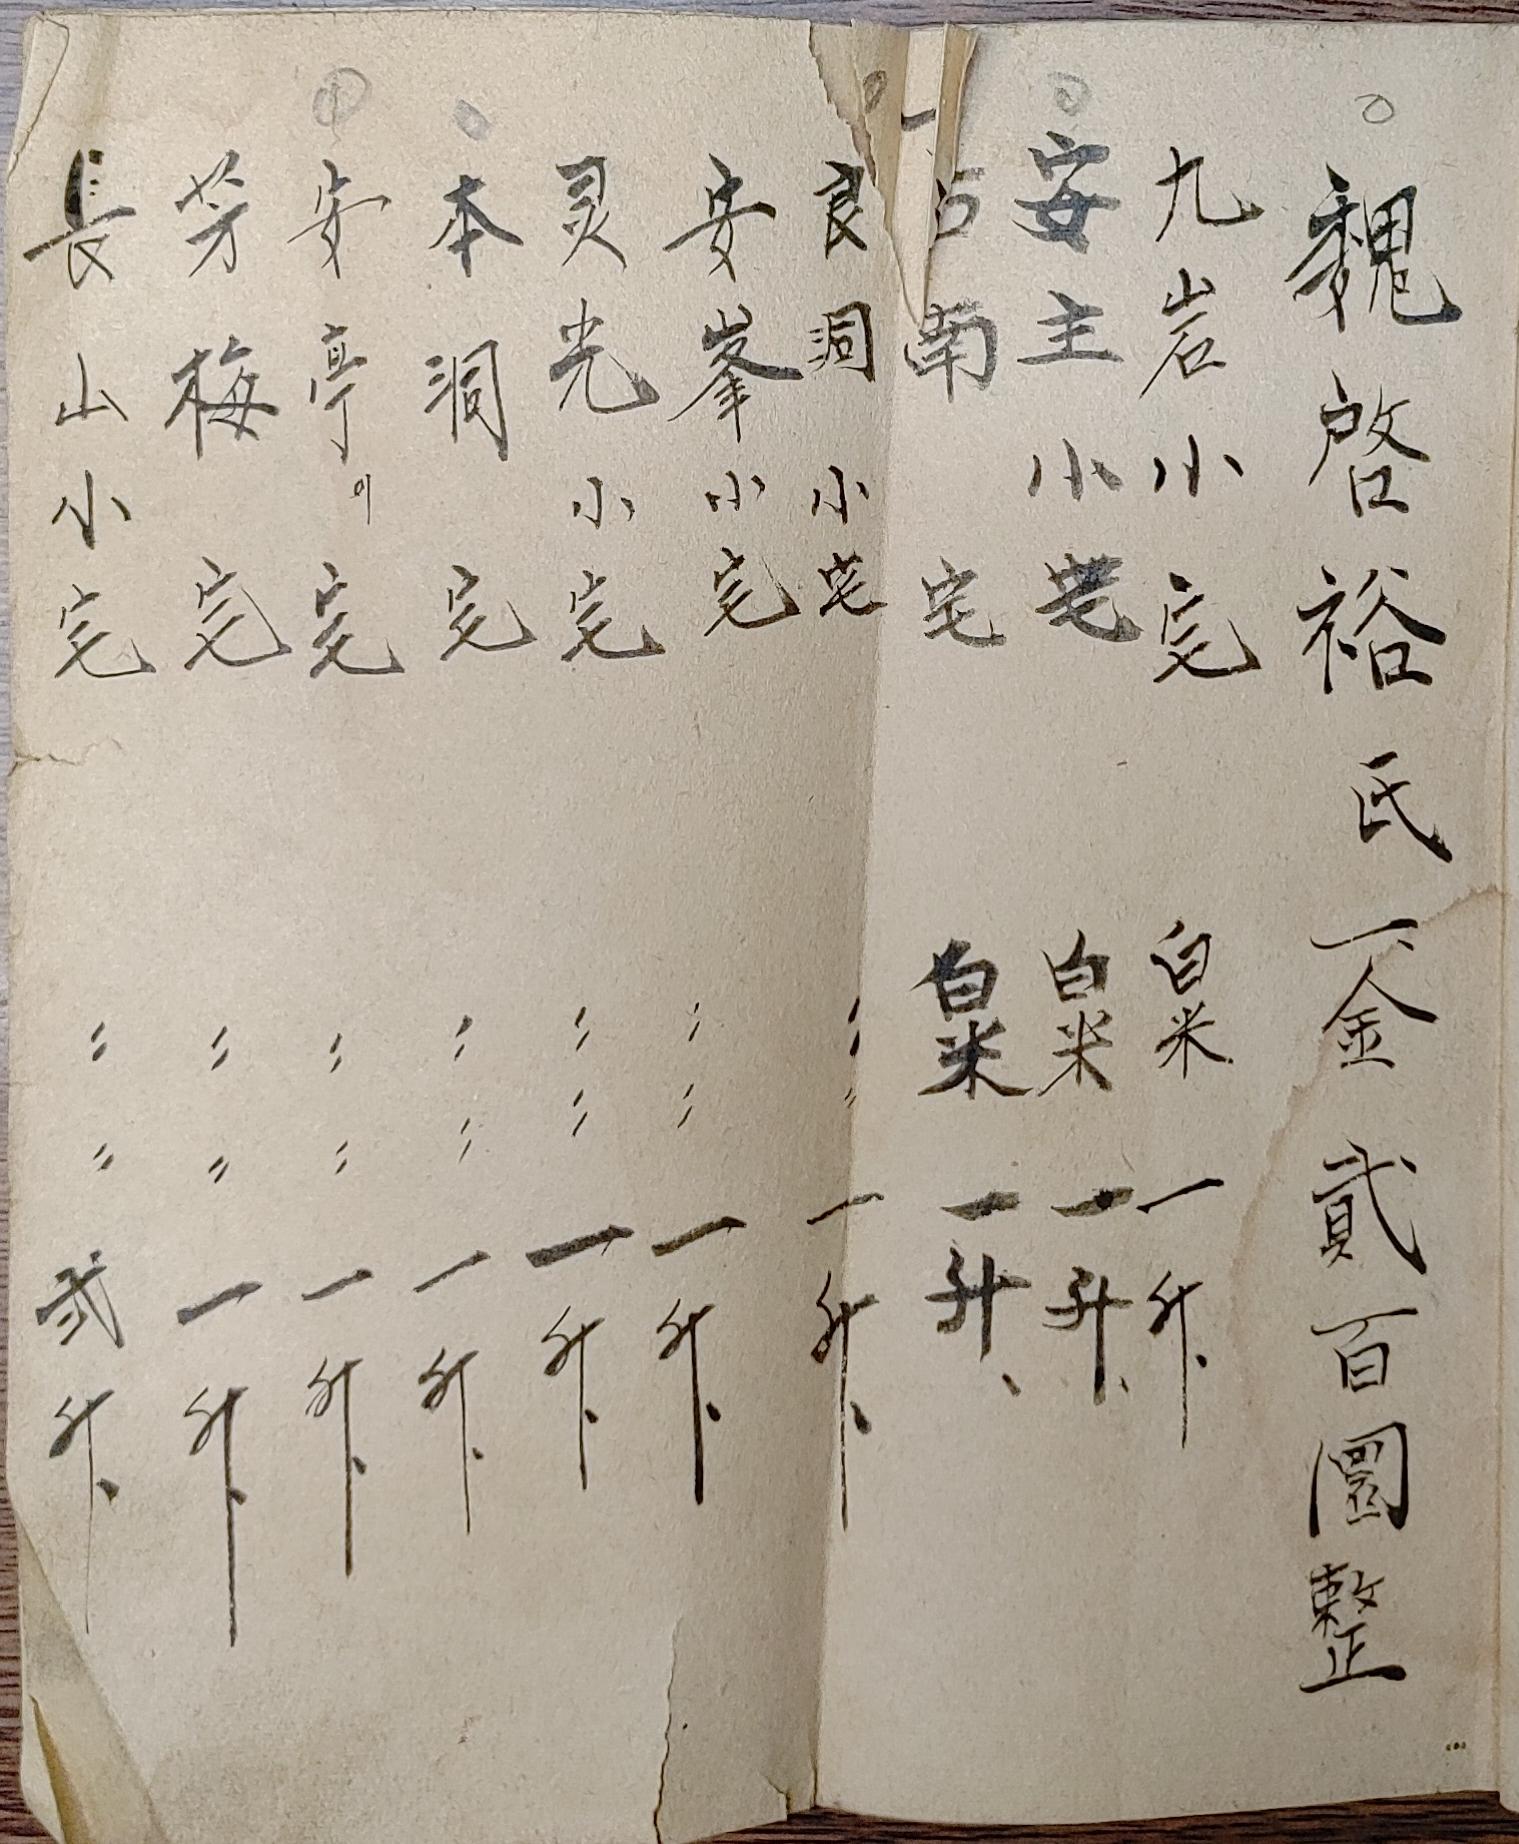 魏啓裕氏 一金貳百圜整
九岩小宅 白米 一升、
安主小宅 白米 一升、
南宅 白米 一升、
良洞小宅 〃 〃 一升、
安峯小宅 〃 〃 一升、
灵光小宅 〃 〃 一升、
本洞宅 〃 〃 一升、
安亭이宅 〃 〃 一升、
芳梅宅 〃 〃 一升、
長山小宅 〃 〃 弍升、